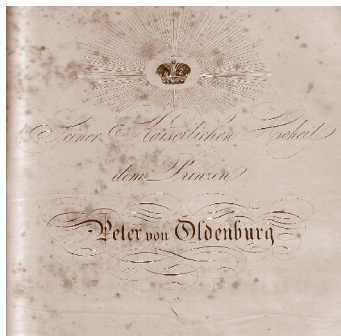 Seiner Kaiserlichen Hoheit
dem Prinzen
Peter von Oldenburg